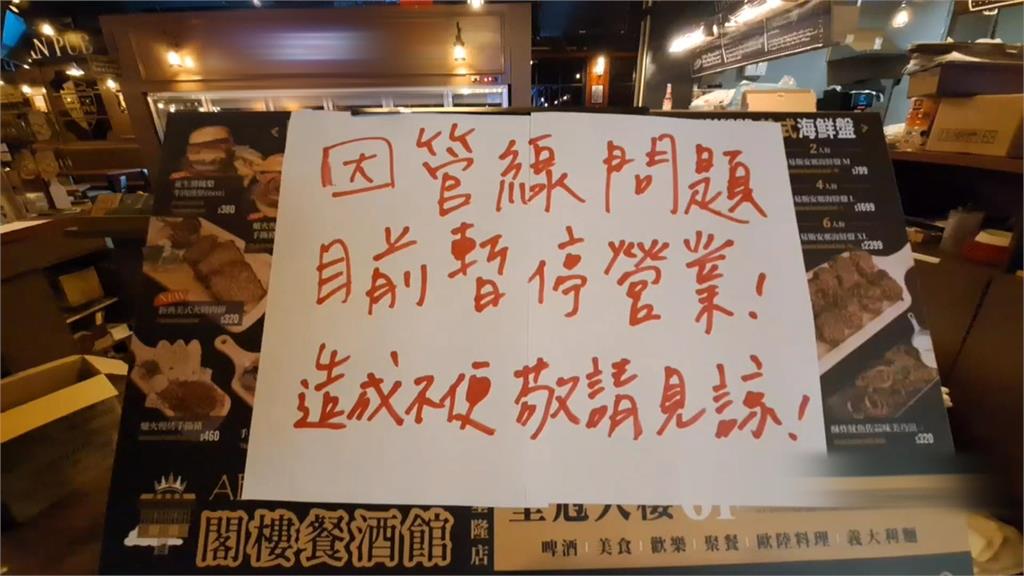 因管線問題
目前暫停營業!
造成不便 敬請見諒!
N PUB
$380
NEW
$320
$460
式海鮮盤
2人份
M
$799
4人份
L
$1699
6人份
XL
$2399
$320
閣樓餐酒館
隆店
6F
啤酒 | 美食 | 歡樂 | 聚餐 | 歐陸料理 | 義大利麵